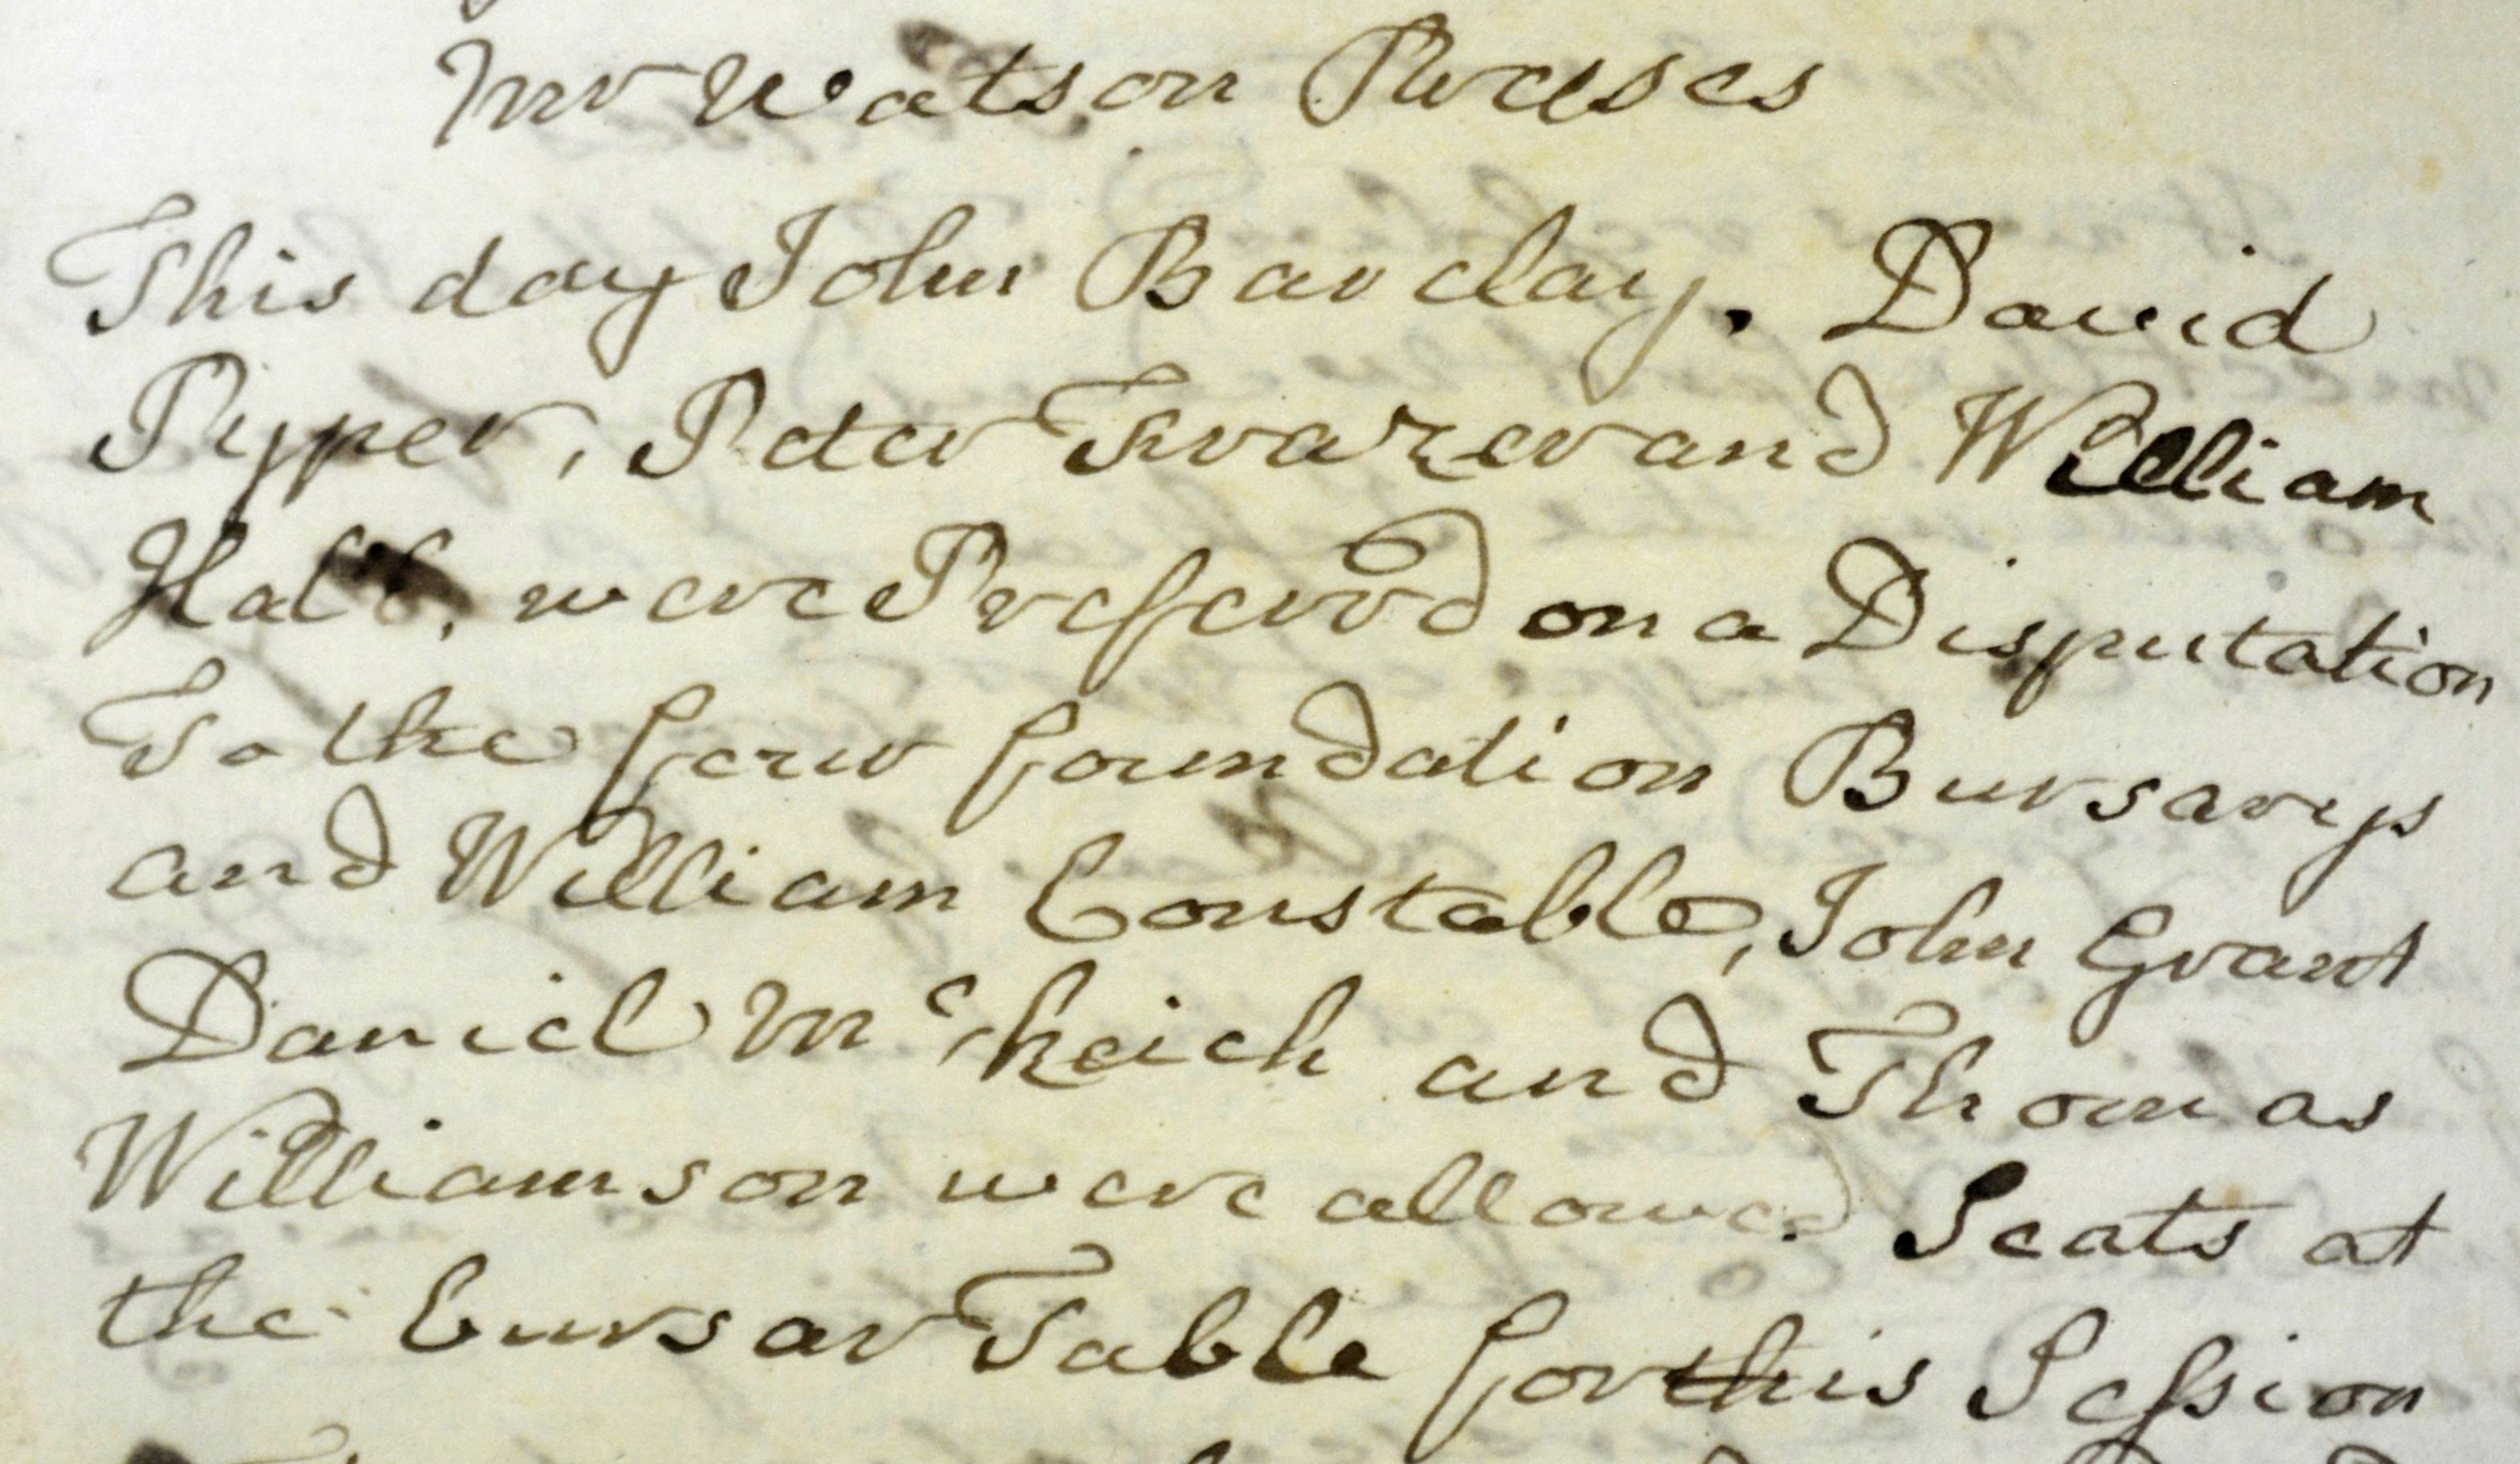 Mr Watson Preses
This day John Barclay. David
Pyper, Peter Frazer and William
Hall, were Preferr'd on a Disputation
To the four foundation Bursarys
and William Constable, John Grant
Daniel Mc Keich and Thomas
Williamson were allowed Seats at
the bursar Table for this Session